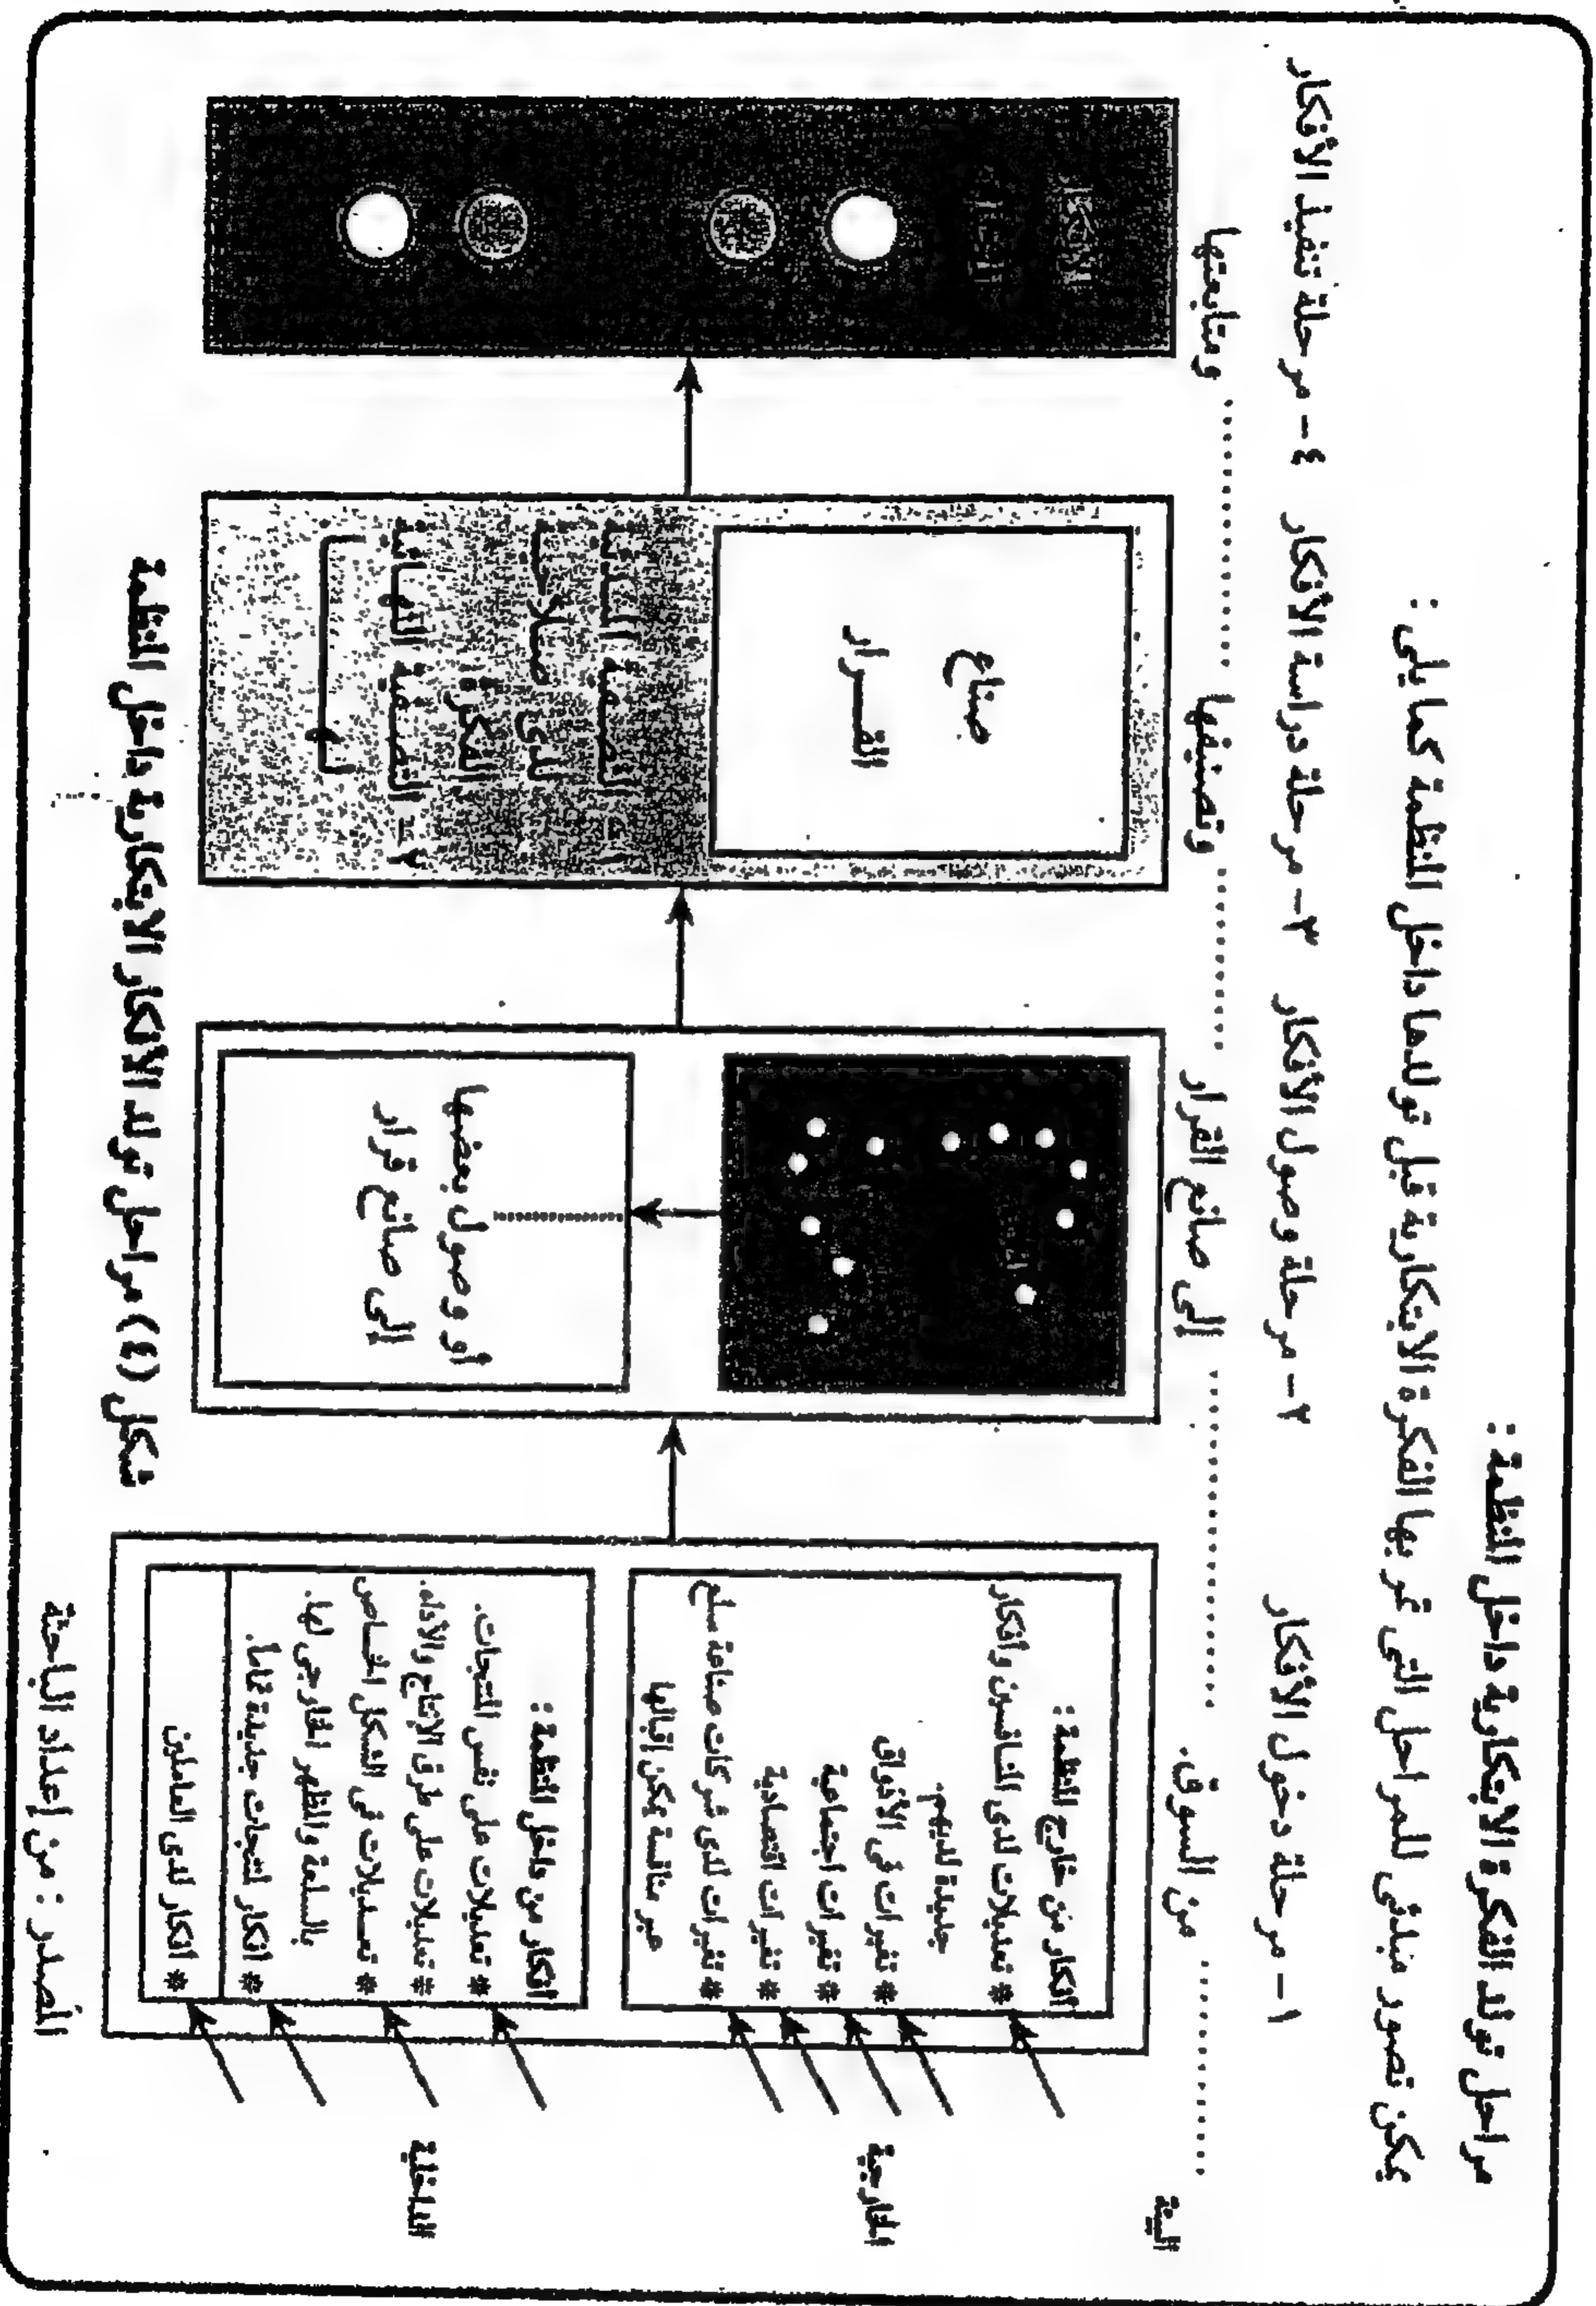 مراحل تولد الفكرة الابتكارية داخل المنظمة :
يمكن تصور مبدئى للمراحل التى تمر بها الفكرة الابتكارية قبل تولدها داخل المنظمة كما يلى :
١ – مرحلة دخول الأفكار
من السوق.
٢ – مرحلة وصول الأفكار
إلى صانع القرار
٣ – مرحلة دراسة الأفكار
وتصنيفها
٤ – مرحلة تنفيذ الأفكار
ومتابعتها
البيئة
الخارجية
الداخلية
أفكار من خارج المنظمة :
* تعديلات لدى المنافسين وأفكار
جديدة لديهم.
* تغيرات فى الأذواق
* تغيرات اجتماعية
* تغيرات اقتصادية
* تغيرات لدى شركات صناعة سلع
غير منافسة يمكن إقبالها
أفكار من داخل المنظمة :
* تعديلات على نفس المنتجات.
* تعديلات على طرق الإنتاج والأداء.
* تعديلات فى الشكل الخاص
بالسلعة والمظهر الخارجى لها.
* أفكار لمنتجات جديدة تماماً.
* أفكار لدى العاملين
أو وصول بعضها
إلى صانع قرار
صناع
القرار
التصفية
لدى
الفكرة
٢ – التصفية النهائية
شكل (٤) مراحل تولد الأفكار الابتكارية داخل المنظمة
المصدر : من إعداد الباحثة